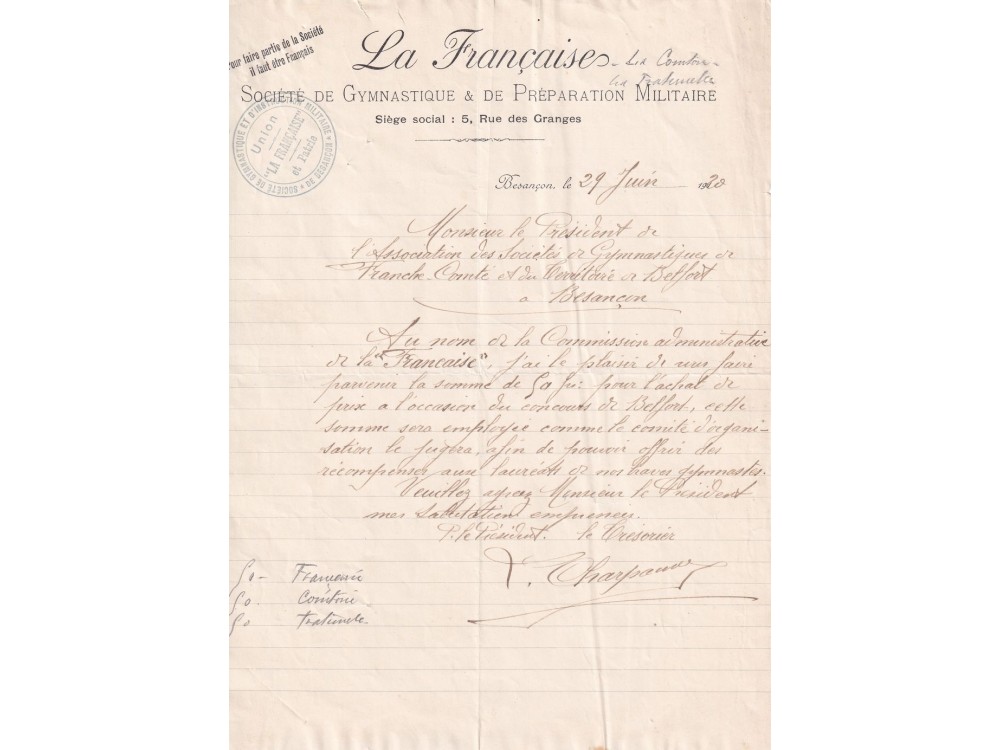 Pour faire partie de la Société
il faut être Français
La Française
- La Comtoise -
La Fraternelle
SOCIÉTÉ DE GYMNASTIQUE & DE PRÉPARATION MILITAIRE
Siège social : 5, Rue des Granges
SOCIÉTÉ DE GYMNASTIQUE ET D'INSTRUCTION MILITAIRE
Union
"LA FRANÇAISE"
et Patrie
DE BESANÇON
Besançon, le 29 Juin 1920
Monsieur le Président de
l'Association des Sociétés de Gymnastiques de
Franche-Comté et du Territoire de Belfort
a Besançon
Au nom de la Commission administrative
de la "Française", j'ai le plaisir de vous faire
parvenir la somme de 50 frs pour l'achat de
prix a l'occasion du concours de Belfort, cette
somme sera employée comme le comité d'organi-
sation le jugera, afin de pouvoir offrir des
récompenses aux lauréats de nos braves gymnastes.
Veuillez agréez Monsieur le Président
mes salutations empressées.
P. le Président. le Trésorier
50 - Française
50 - Comtoise
50 Fraternelle